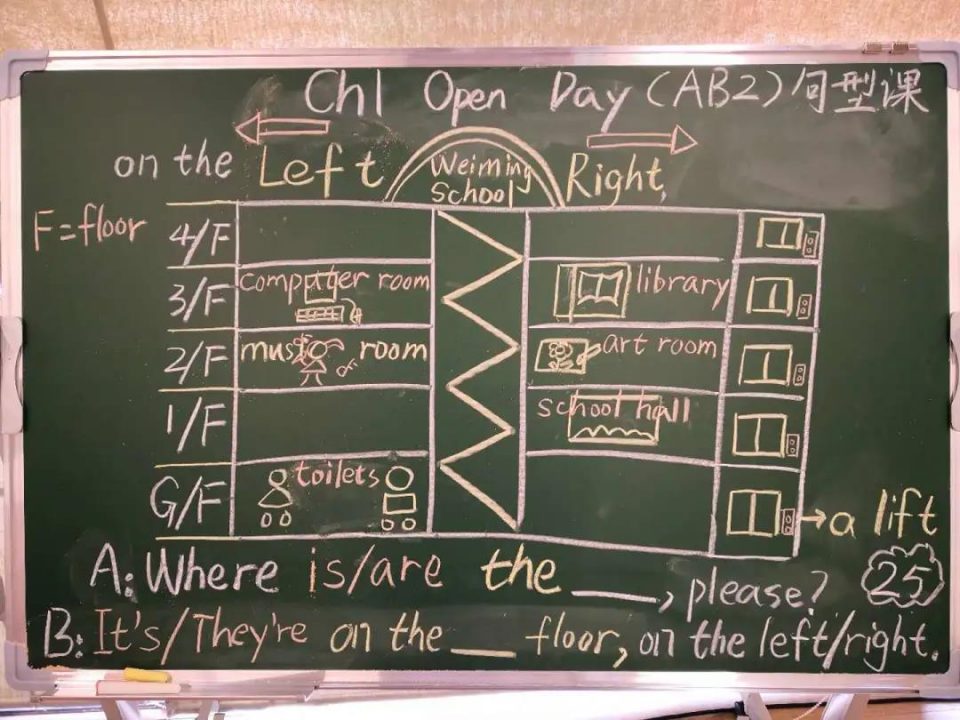 Ch1 Open Day (AB2) 句型课
on the Left Weiming School Right,
F=floor
4/F
3/F computer room library
2/F music room art room
1/F school hall
G/F toilets a lift
A: Where is/are the ____, please? 25
B: It's/They're on the ___ floor, on the left/right.